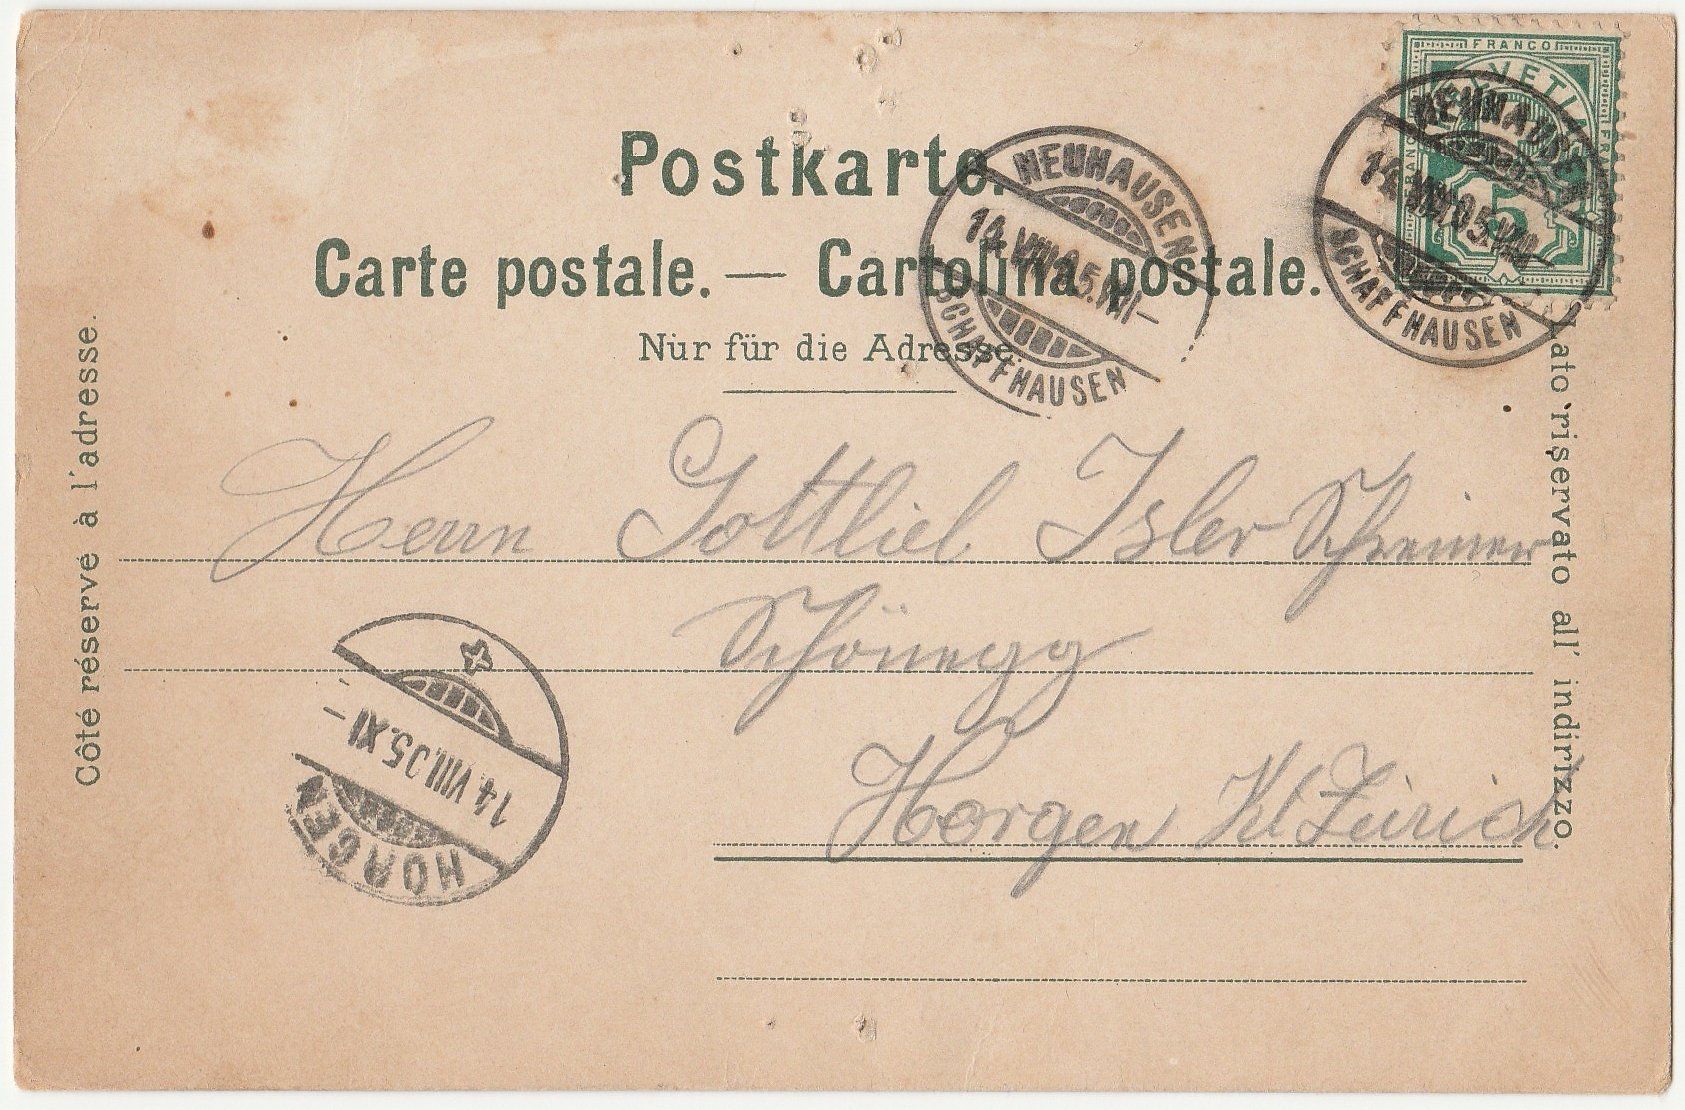 FRANCO
HELVETIA
FRANCO
FRANCO
5
Postkarte.
Carte postale. — Cartolina postale.
Nur für die Adresse.
NEUHAUSEN
14.VIII.05.VIII–
SCHAFFHAUSEN
NEUHAUSEN
14.VIII.05.VIII–
SCHAFFHAUSEN
Côté réservé à l'adresse.
Lato riservato all' indirizzo.
Herrn Gottlieb Isler Schreiner
Schönegg
Horgen Kt Zürich
14.VIII.05.XI–
HORGEN